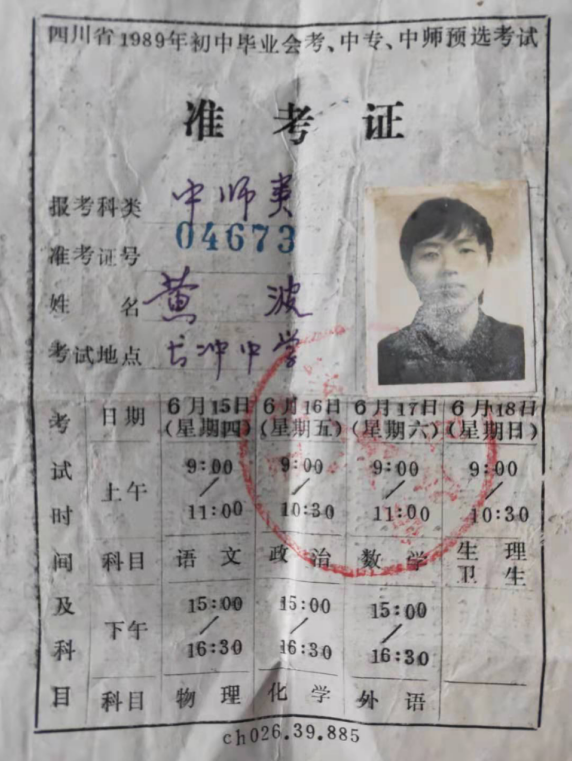 四川省1989年初中毕业会考、中专、中师预选考试
准考证
报考科类 中师类
准考证号 04673
姓名 黄波
考试地点 长冲中学
考试时间及科目
日期 6月15日(星期四) 6月16日(星期五) 6月17日(星期六) 6月18日(星期日)
上午 9:00/11:00 9:00/10:30 9:00/11:00 9:00/10:30
科目 语文 政治 数学 生理卫生
下午 15:00/16:30 15:00/16:30 15:00/16:30
科目 物理 化学 外语
ch026.39.885